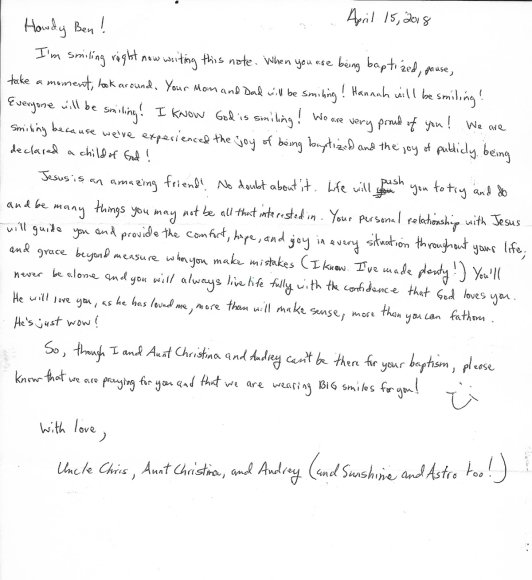 April 15, 2018
Howdy Ben!
I'm smiling right now writing this note. When you are being baptized, pause,
take a moment, look around. Your Mom and Dad will be smiling! Hannah will be smiling!
Everyone will be smiling! I KNOW God is smiling! We are very proud of you! We are
smiling because we've experienced the joy of being baptized and the joy of publicly being
declared a child of God!
Jesus is an amazing friend! No doubt about it. Life will push you to try and do
and be many things you may not be all that interested in. Your personal relationship with Jesus
will guide you and provide the comfort, hope, and joy in every situation throughout your life,
and grace beyond measure when you make mistakes (I know. I've made plenty!) You'll
never be alone and you will always live life fully with the confidence that God loves you.
He will love you, as he has loved me, more than will make sense, more than you can fathom.
He's just wow!
So, though I and Aunt Christina and Audrey can't be there for your baptism, please
know that we are praying for you and that we are wearing BIG smiles for you!
With love,
Uncle Chris, Aunt Christina, and Audrey (and Sunshine and Astro too!)